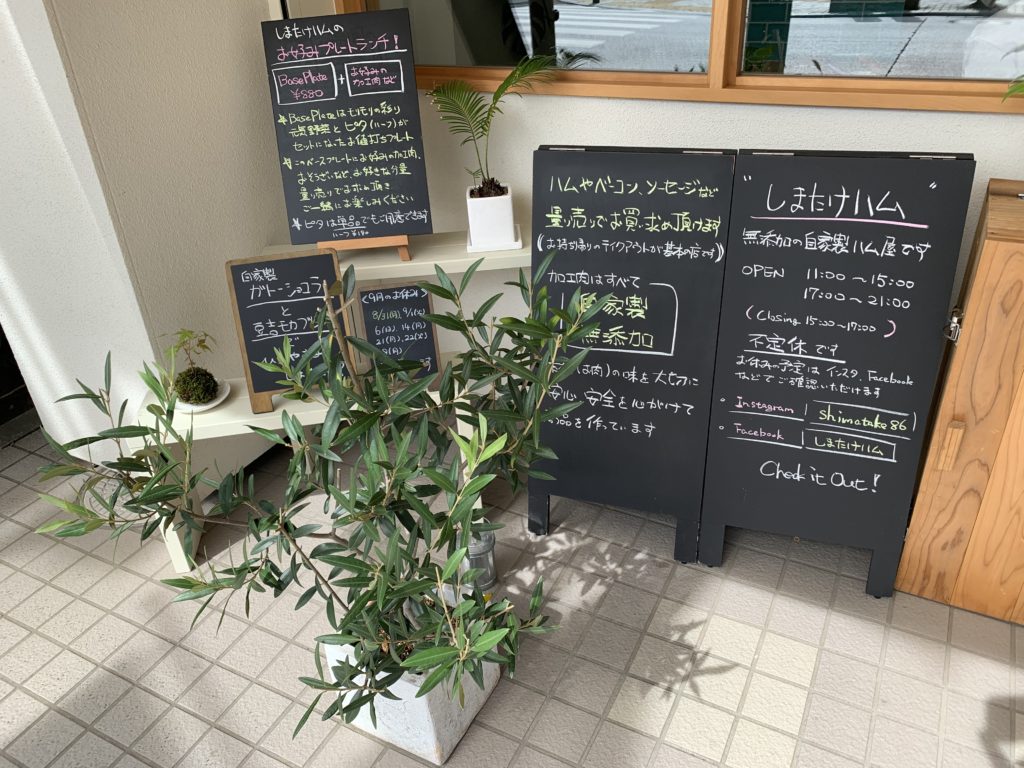 しまたけハムの
お好みプレートランチ!
Base Plate
¥880
+
お好みの
加工肉など
Base Plateはモリモリの彩り
元気野菜とピタ(ハーフ)が
セットになったお値打ちプレート
このベースプレートにお好みの加工肉、
おそうざいなど、お好きな分量
量り売りでお求め頂き
ご一緒にお楽しみください
ピタは単品でもご用意できます
ハーフ ¥180
自家製
ガトーショコラ
と
豆吉モカブ
<9月のお休み>
8/31(月), 9/1(火)
6(日), 14(月)
21(月), 22(火)
ハムやベーコン、ソーセージなど
量り売りでお買い求め頂けます
(お持ち帰りのテイクアウトが基本の店です)
加工肉はすべて
自家製
無添加
肉)の味を大切に
安心、安全を心がけて
品を作っています
"しまたけハム"
無添加の自家製ハム屋です
OPEN 11:00~15:00
17:00~21:00
(Closing 15:00~17:00)
不定休です
お休みの予定はインスタ、Facebook
などでご確認いただけます
Instagram shimatake86
Facebook しまたけハム
Check it Out!